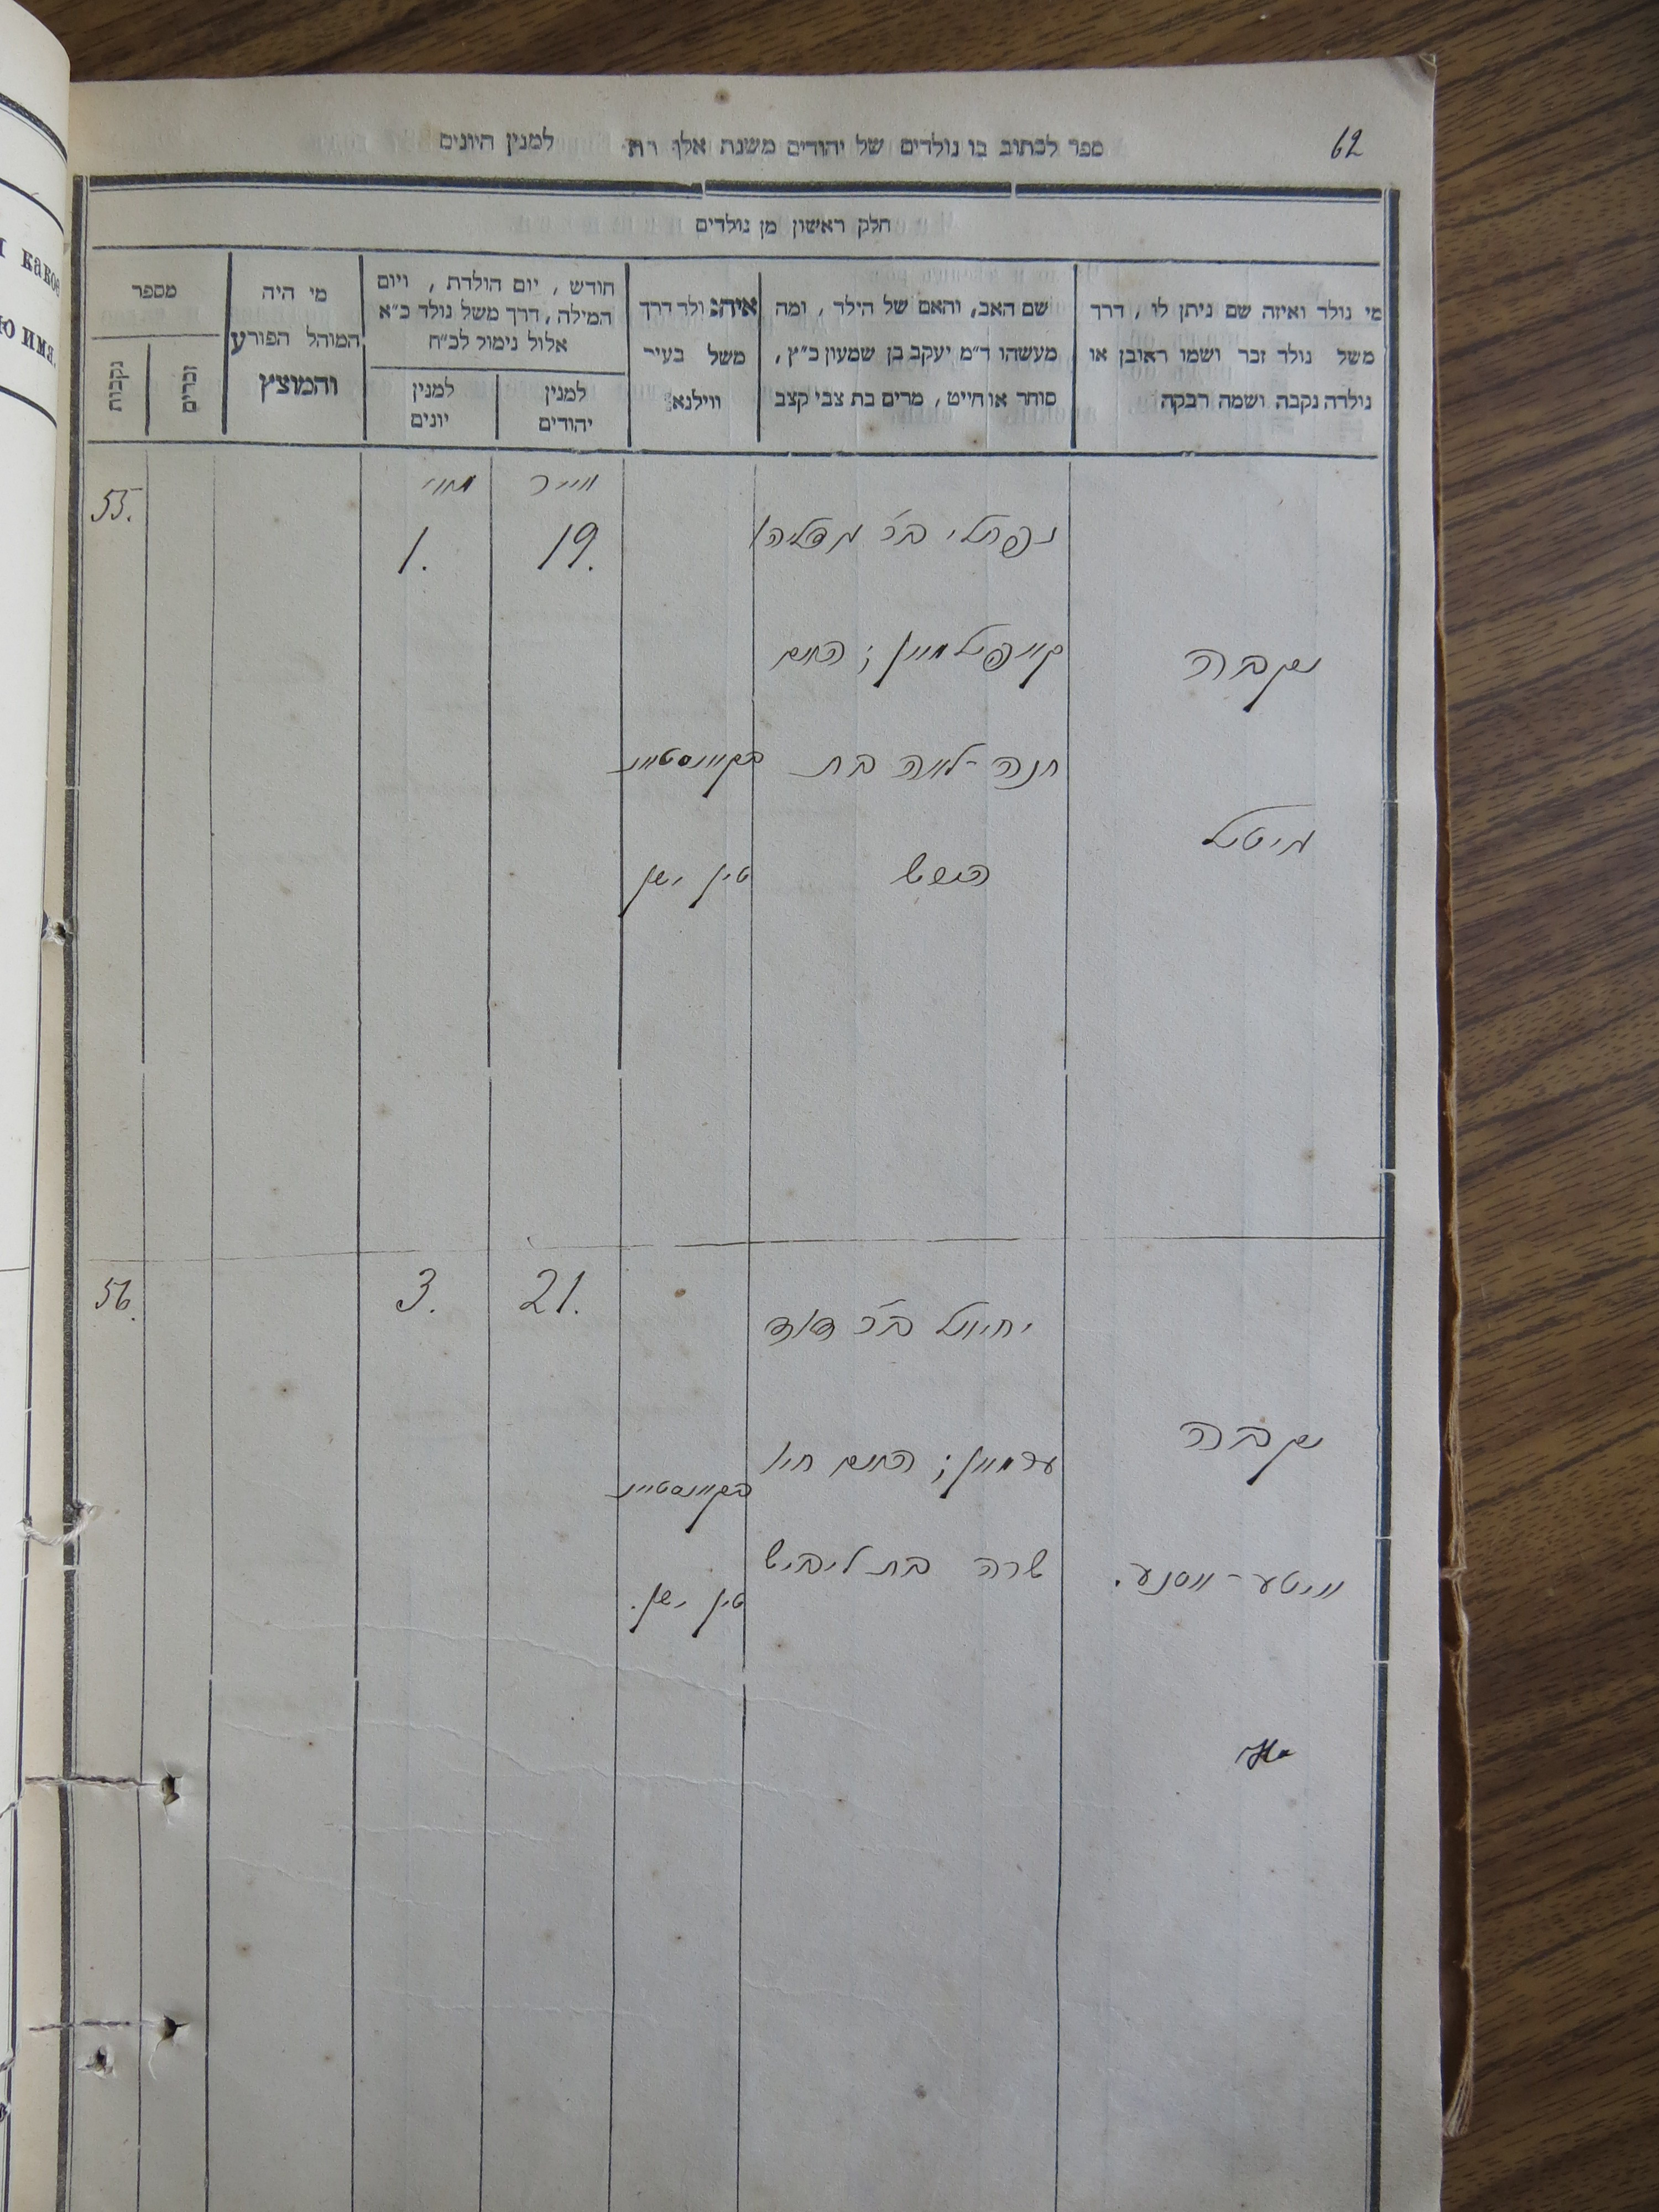 62
ספר לכתוב בו נולדים של יהודים משנת אלף ות למנין היונים
חלק ראשון מן נולדים
מי נולד ואיזה שם ניתן לו, דרך
משל נולד זכר ושמו ראובן או
נולדה נקבה ושמה רבקה
שם האב, והאם של הילד, ומה
מעשהו ד״מ יעקב בן שמעון כ״ץ,
סוחר או חייט, מרים בת צבי קצב
איהנולד דרך
משל בעיר
ווילנא
חודש, יום הולדת, ויום
המילה, דרך משל נולד כ״א
אלול נימול לכ״ח
למנין
יהודים
למנין
יונים
מי היה
המוהל הפורע
והמוצץ
מספר
זכרים
נקבות
נקבה
מיטל
נפתלי ב״ר
קויפטמאן; האם
חנה-לאה בת
הגשט
בקאנסטאנ
טין ישן
אייר
19.
מאי
1.
55.
נקבה
וויטע-אסנע.
יחיאל ב״ר דוד
ערמאן; האם חיו
שרה בת ליביש
בקאנסטאנ
טין ישן.
21.
3.
56.